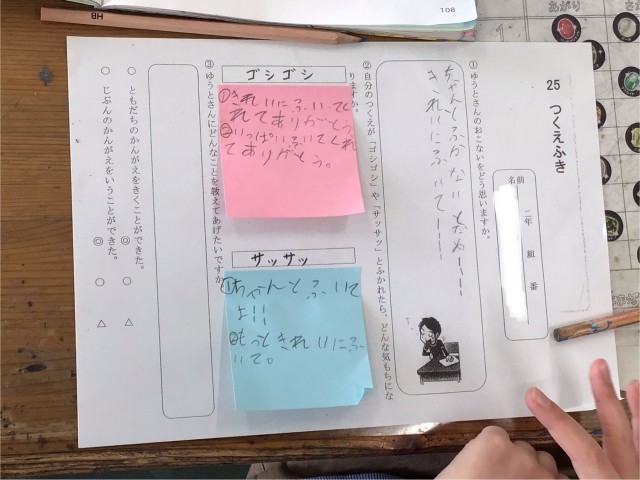 108
HB
あがり
25 つくえふき
名前
二年 組 番
①ゆうとさんのおこないをどう思いますか。
ちゃんとふかないとだめーーー
きれいにふいてーーー
②自分のつくえが「ゴシゴシ」や「サッサッ」とふかれたら、どんな気もちにな
りますか。
ゴシゴシ
①きれいにふいてく
れてありがとう
②いっぱいふいてくれ
てありがとう。
サッサッ
①ちゃんとふいて
よ!!
②もっときれいにふ
いて。
③ゆうとさんにどんなことを教えてあげたいですか
○ ともだちのかんがえをきくことができた。 ◎ ○ △
○ じぶんのかんがえをいうことができた。 ◎ ○ △